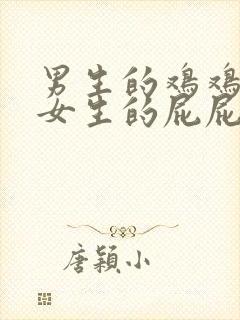 男生的鸡鸡
女生的屁屁
唐颖小